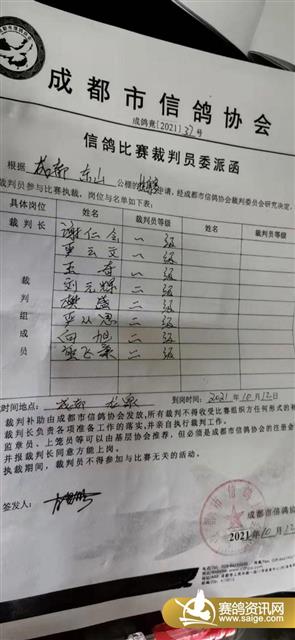 成都市信鸽协会
成鸽竞[2021]37号
信鸽比赛裁判员委派函
根据 成都 东山 公棚的 申请,经成都市信鸽协会裁判委员会研究决定,
裁判员参与比赛执裁,岗位与名单如下表:
具体岗位 姓名 裁判员等级 姓名 裁判员等级
裁判长 谢仁全 一级
裁判组成员
文 一级
王奇 一级
刘元 二级
盛 二级
从恩 二级
向旭 二级
飞 二级
时间地点: 成都 龙泉 到岗时间: 2021.10.12
裁判补助由成都市信鸽协会发放,所有裁判不得收受比赛组织方任何形式的补
裁判长负责各项准备工作的落实,并亲自执行裁判工作。
监章员、上笼员等可以由基层协会推荐,但必须是成都市信鸽协会的注册会
并报裁判长同意方能上岗。
执裁期间,裁判员不得参加与比赛无关的活动。
签发人:
成都市信鸽协
2021年10月
赛鸽资讯网
www.saige.com